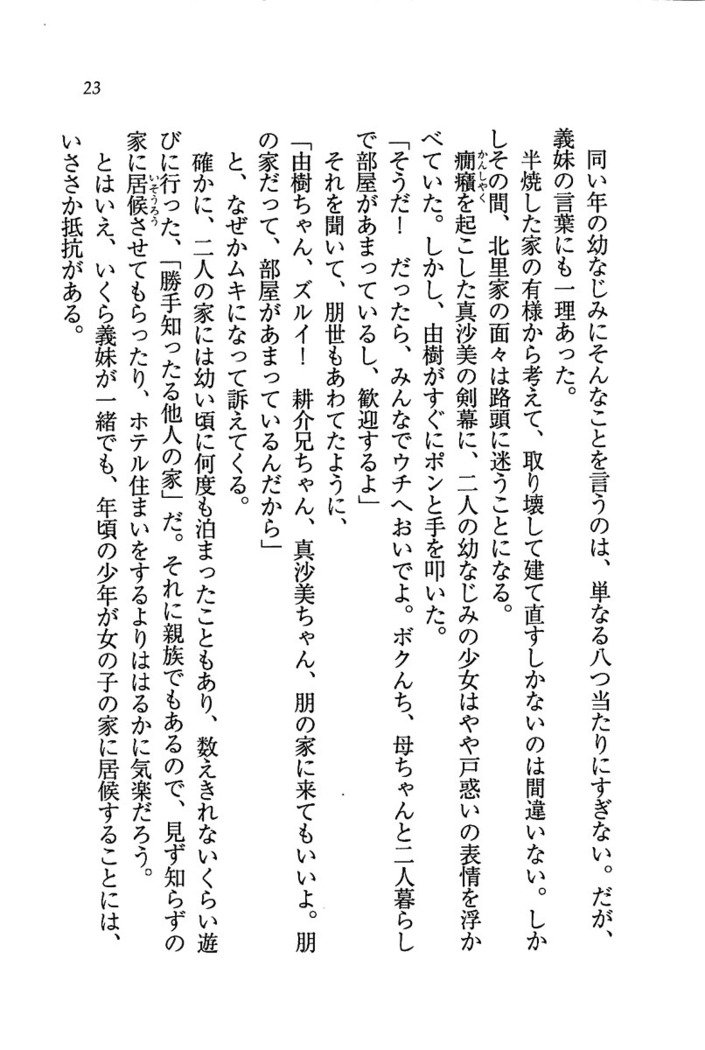 23
同い年の幼なじみにそんなことを言うのは、単なる八つ当たりにすぎない。だが、
義妹の言葉にも一理あった。
半焼した家の有様から考えて、取り壊して建て直すしかないのは間違いない。しか
しその間、北里家の面々は路頭に迷うことになる。
癇癪を起こした真沙美の剣幕に、二人の幼なじみの少女はやや戸惑いの表情を浮か
かんしゃく
べていた。しかし、由樹がすぐにポンと手を叩いた。
「そうだ！　だったら、みんなでウチへおいでよ。ボクんち、母ちゃんと二人暮らし
で部屋があまっているし、歓迎するよ」
それを聞いて、朋世もあわてたように、
「由樹ちゃん、ズルイ！　耕介兄ちゃん、真沙美ちゃん、朋の家に来てもいいよ。朋
の家だって、部屋があまっているんだから」
と、なぜかムキになって訴えてくる。
確かに、二人の家には幼い頃に何度も泊まったこともあり、数えきれないくらい遊
びに行った、「勝手知ったる他人の家」だ。それに親族でもあるので、見ず知らずの
家に居候させてもらったり、ホテル住まいをするよりははるかに気楽だろう。
いそうろう
とはいえ、いくら義妹が一緒でも、年頃の少年が女の子の家に居候することには、
いささか抵抗がある。